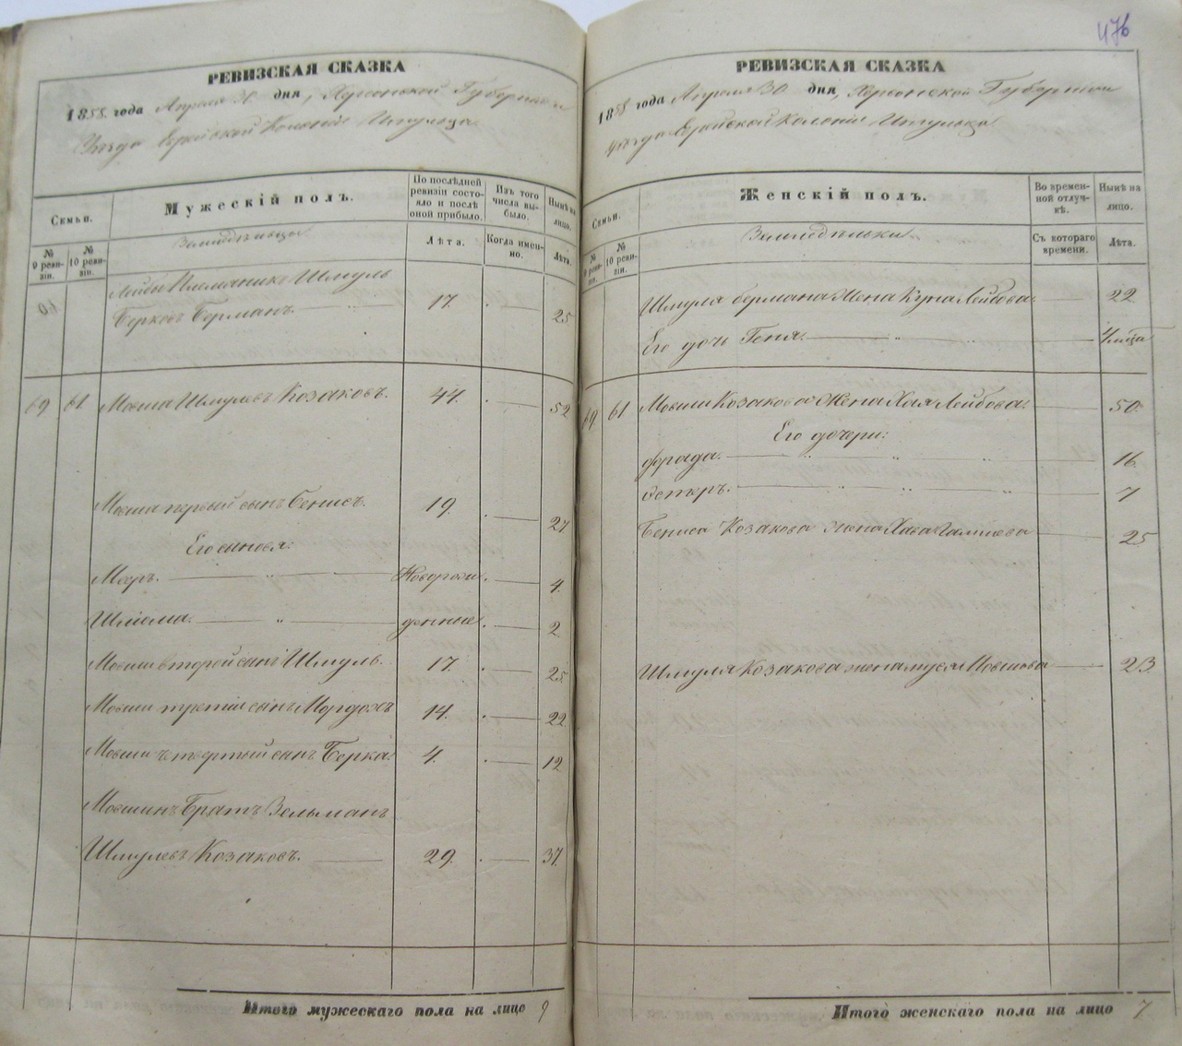 РЕВИЗСКАЯ СКАЗКА
1858 года Апреля 30 дня, Херсонской Губернии
Уезда Еврейской Колонии Ингульца
Семьи.
Мужескій полъ.
По послѣдней ревизіи состояло и послѣ оной прибыло.
Изъ того числа выбыло.
Нынѣ на лицо.
№ 9 ревизіи.
№ 10 ревизіи.
Лѣта.
Когда именно.
Лѣта.
60
Лейбы Племянникъ Шмуль
Берковъ Берманъ. 17. 25
59 61 Мовша Шмулевъ Козаковъ. 44. 52
Мовши первый сынъ Бенисъ. 19. 27
Его сыновья:
Мееръ. Новорож 4.
Шлема. денные 2
Мовши второй сынъ Шмуль. 17. 25
Мовши третій сынъ Мордохъ 14. 22
Мовши четвертый сынъ Берка. 4. 12
Мовшинъ Братъ Зельманъ
Шмулевъ Козаковъ. 29. 37.
Итого мужескаго пола на лицо 9
476
РЕВИЗСКАЯ СКАЗКА
1858 года Апреля 30 дня, Херсонской Губернии
уезда Еврейской Колонии Ингульца
Семьи.
Женскій полъ.
Во временной отлучкѣ.
Нынѣ на лицо.
№ 9 ревизіи.
№ 10 ревизіи.
Съ котораго времени.
Лѣта.
Шмуля Бермана Жена Куна Лейбова. 22
Его дочь Геня.
59 61 Мовши Козакова Жена Хая Лейбова. 50.
Его дочери:
Фрада. 16.
Эстеръ. 7
Бениса Козакова жена 25
Шмуля Козакова жена Муся Мовшова 23.
Итого женскаго пола на лицо 7.